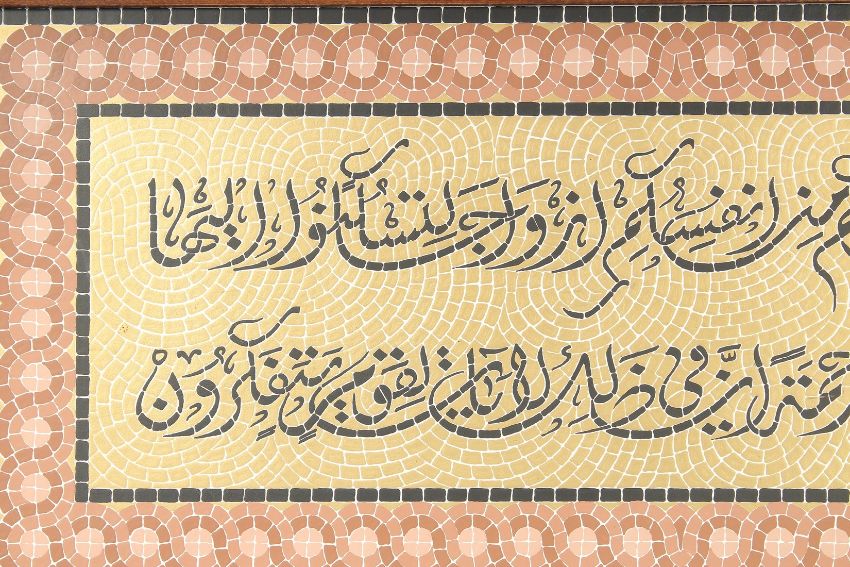 من انفسكم ازواجا لتسكنوا اليها
إنّ في ذلك لايات لقوم يتفكرون